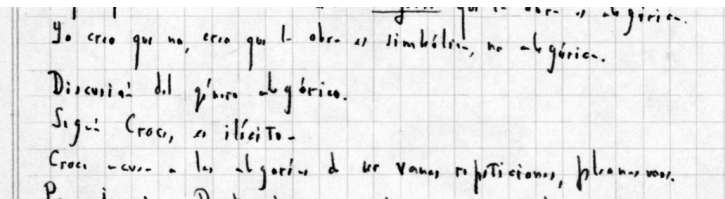 que la obra es alegórica.
Yo creo que no, creo que la obra es simbólica, no alegórica.
Discusión del género alegórico.
Según Croce, es ilícito.
Croce acusa a las alegorías de ser vanas repeticiones, pleonasmos.